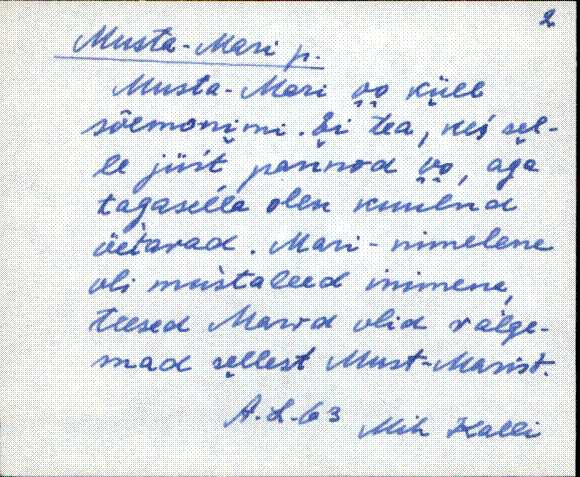 2
Musta-Mari p.
Musta-Mari o̤o̤ küll
sõimonimi. Ei tea, kes sel-
le jüst pannod o̤o̤, aga
tagasella olen kuulnd
üetavad. Mari-nimelene
oli mustaleed inimene,
teesed Marid olid valge-
mad sellest Must-Marist.
A.L-63 Mih Kalli